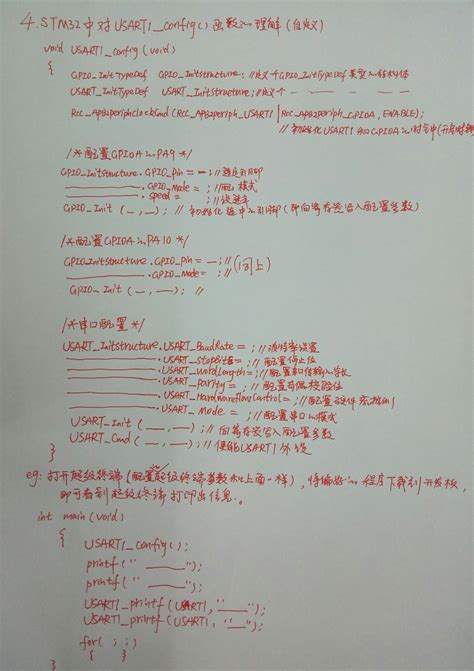 4. STM32中对USART1_config()函数的理解(自定义)
void USART1_config(void)
{
GPIO_InitTypeDef GPIO_Initstructure; //定义个GPIO_InitTypeDef类型的结构体
USART_InitTypeDef USART_Initstructure; //定义个 — — — —
Rcc_APB2periphclockCmd(Rcc_APB2periph_USART1 | Rcc_APB2periph_GPIOA, ENABLE);
//初始化USART1和GPIOA的时钟
/*配置GPIOA的PA9*/
GPIO_Initstructure.GPIO_Pin = —; //选定引脚
———.GPIO_Mode = ; //配 模式
———.speed = ; //设速率
GPIO_Init(—, —); //初始化 引脚(即向寄存器写入配置参数)
/*配置GPIOA的PA10*/
GPIO_Initstructure.GPIO_Pin = —; //(同上)
———.GPIO_Mode = ; //
GPIO_Init(—, —); //
/*串口配置*/
USART_Initstructure.USART_BaudRate = ; //波特率设置
———.USART_StopBits = ; //配置停止位
———.USART_WordLength = ; //配置串口传输字长
———.USART_Parity = ; //配置奇偶校验位
———.USART_HardwareFlowControl = ; //配置硬件流控制
———.USART_Mode = ; //配置串口的模式
USART_Init(—, —); //向寄存器写入配置参数
USART_Cmd(—, —); //使能USART1外设
}
eg: 打开超级终端(配置超级终端参数和上面一样), 将 程序下载到开发板,
即可看到超级终端打印出信息.
int main(void)
{
USART1_config();
printf(" ——");
printf(" ——");
USART1_printf(USART1, "——");
USART1_printf(USART1, "——");
for(;;)
{ }
}